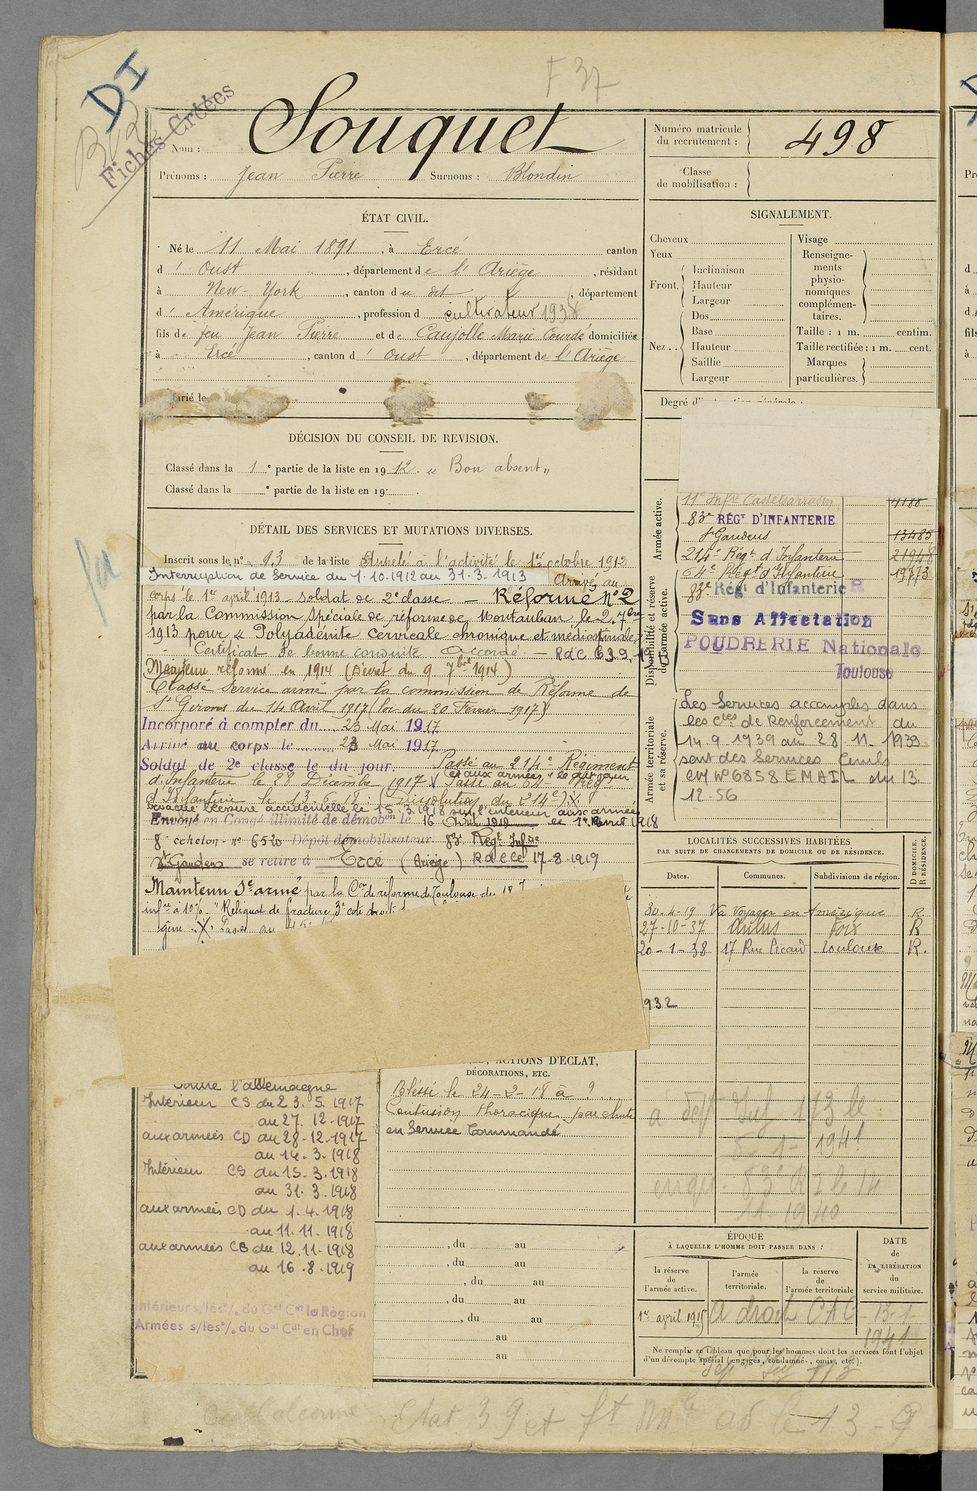 F 37
DI
Fiches Créées
Nom : Souquet
Prénoms : Jean Pierre Surnoms : Blondin
Numéro matricule du recrutement : 498
Classe de mobilisation :
ÉTAT CIVIL.
Né le 11 Mai 1891, à Ercé canton
d' Oust, département de l'Ariège, résidant
à New-York, canton du dit département
d' Amérique, profession d cultivateur 1938
fils de feu Jean Pierre et de Caujolle Marie Courdé domiciliés
à Ercé, canton d' Oust, département de l'Ariège
arié le
SIGNALEMENT.
Cheveux
Yeux
Front. Inclinaison
Hauteur
Largeur
Nez .. Dos
Base
Hauteur
Saillie
Largeur
Visage
Renseignements physionomiques complémentaires.
Taille : 1 m. centim.
Taille rectifiée : 1 m. cent.
Marques particulières.
DÉCISION DU CONSEIL DE REVISION.
Classé dans la 1e partie de la liste en 1912. « Bon absent »
Classé dans la e partie de la liste en 19
DÉTAIL DES SERVICES ET MUTATIONS DIVERSES.
Inscrit sous le n° 93 de la liste Appelé à l'activité le 1er octobre 1912
Interruption de Service du 1.10.1912 au 31.3.1913 Arrivé au
corps le 1er avril 1913 – soldat de 2e classe – Réformé N°2
par la Commission Spéciale de réforme de Montauban, le 2.7bre
1913 pour « Polyadénite Cervicale chronique et médiastinale
Certificat de bonne conduite accordé – RdC 639
Maintenu réformé en 1914 (Décret du 9 7bre 1914)
Classé Service armé par la commission de Réforme de
St Girons du 14 Avril 1917 (loi du 20 Février 1917)
Incorporé à compter du 23 Mai 1917
Arrivé au corps le 23 Mai 1917
Soldat de 2e classe le du jour. Passé au 214e Régiment
d'Infanterie le 28 Décembre 1917 Passé au 64e Régt
d'Infanterie le 13.6.18. (Dissolution du 214e)
Envoyé en Congé illimité de démobon le 16 le 1er Avril 1918
8e échelon n° 6520 Dépôt démobilisateur 83e Régt Infie
St Gaudens se retire à Ercé (Ariège) RdeCé 17-8-1919
Maintenu Sce armé par la Con de réforme de Toulouse du 18
infre à 10% "Reliquat de fracture 3e côte droite
Armée active.
11e Infie Castelsarrasin
83e RÉGt D'INFANTERIE
St Gaudens 13485
214e Régt d'Infanterie 21948
64e Régt d'Infanterie
83e Régt d'Infanterie
Disponibilité et réserve de l'armée active.
Sans Affectation
POUDRERIE Nationale
Toulouse
Armée territoriale et sa réserve.
Les Services accomplis dans
les Cies de Renforcement du
14.9.1939 au 28.11.1939
sont des Services Civils
CM N°6858 EMAIL du 13.
12-56
LOCALITÉS SUCCESSIVES HABITÉES
PAR SUITE DE CHANGEMENTS DE DOMICILE OU DE RÉSIDENCE.
D DOMICILE. R RÉSIDENCE.
Dates. Communes. Subdivisions de région.
30-4-19 Va Voyager en Amérique R
27-10-37 Aulus Foix R
20-1-38 17 Rue Ricaud Toulouse R.
932
ACTIONS D'ÉCLAT,
DÉCORATIONS, ETC.
Blessé le 24-2-18 à ?
Contusion thoracique par chute
en Service Commandé
l'allemagne
Intérieur CS du 23.5.1917
au 27.12.1917
aux armées CD du 28-12-1917
au 14.3.1918
Intérieur CS du 15.3.1918
au 31.3.1918
aux armées CD du 1.4.1918
au 11.11.1918
aux armées CB du 12.11.1918
au 16.8.1919
Intérieur s/les/o. du Gal Ct la Région
Armées s/les o/o du Gal Ct en Chef
, du au
, du au
, du au
, du au
, du au
au
au
ÉPOQUE
À LAQUELLE L'HOMME DOIT PASSER DANS :
la réserve de l'armée active.
l'armée territoriale.
la réserve de l'armée territoriale
DATE de LA LIBÉRATION du service militaire.
1er avril 1915 a droit CAC 13-1-1941
Ne remplir ce tableau que pour les hommes dont les services font l'objet
d'un décompte spécial (engagés, condamnés, omis, etc.).